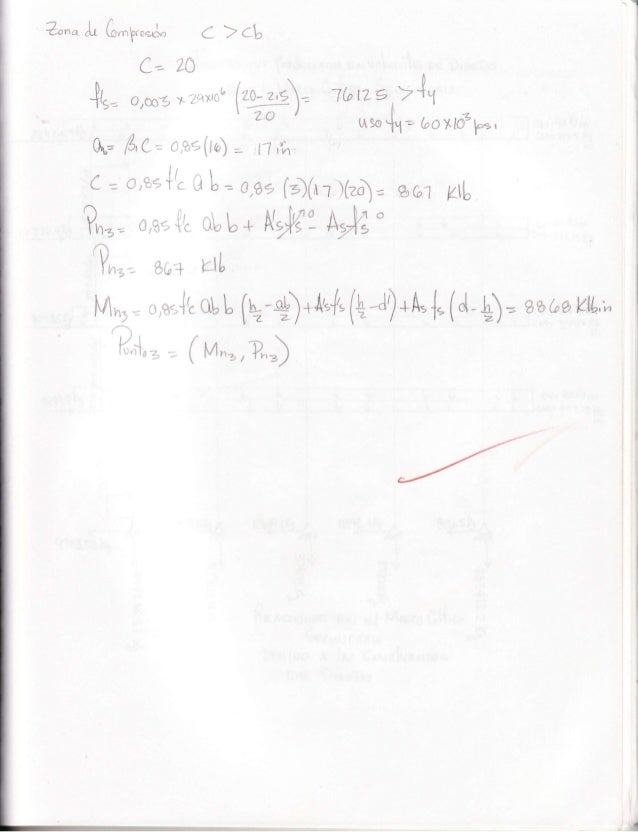 Zona de Compresión C > Cb
C = 20
f's = 0,003 x 29x10⁶ (20-2,5 / 20) = 76125 > fy
uso fy = 60x10³ psi
ab = β₁C = 0,85(16) = 17 in
C = 0,85 f'c a b = 0,85 (3)(17)(20) = 867 Klb
Pn₃ = 0,85 f'c ab b + A's f's⁰ - As fs⁰
Pn₃ = 867 Klb
Mn₃ = 0,85 f'c ab b (h/2 - ab/2) + A's f's (h/2 - d') + As fs (d - h/2) = 8868 Klb.in
Punto₃ = (Mn₃, Pn₃)